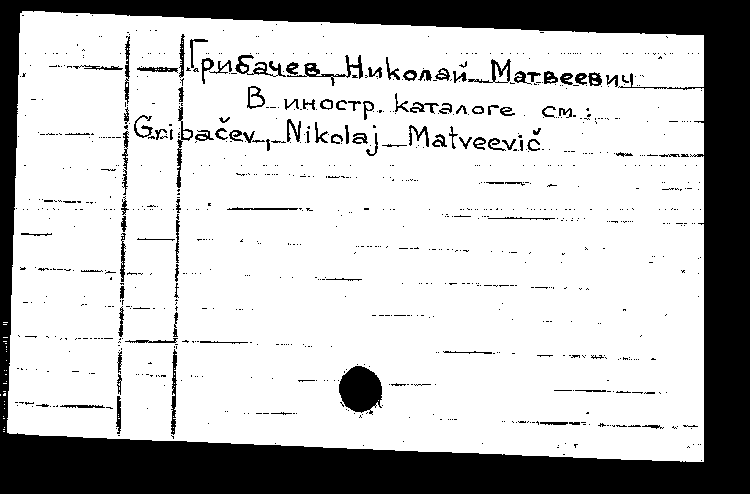 Грибачев, Николай Матвеевич
В иностр. каталоге см.:
Gribačev, Nikolaj Matveevič